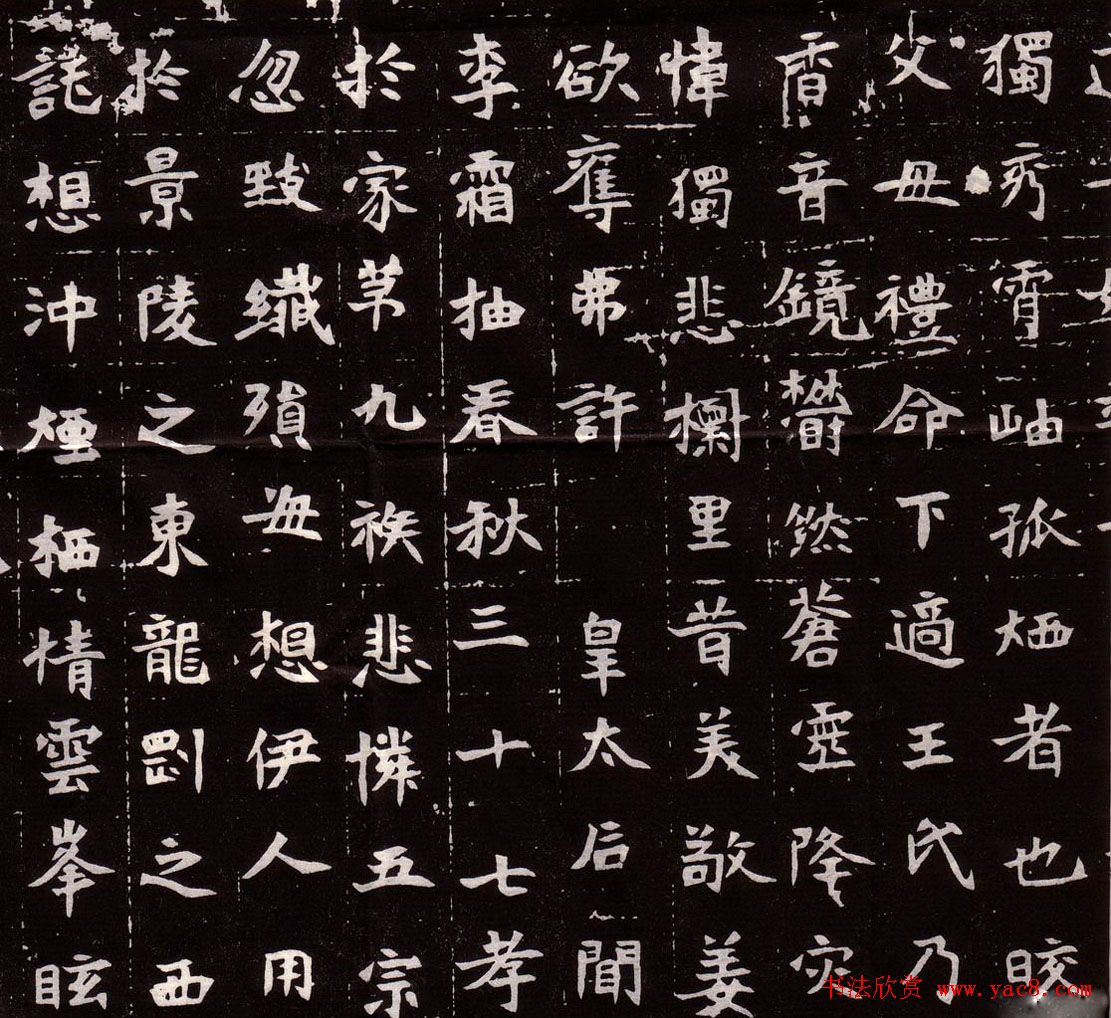 獨秀霄岫孤栖者也晈
父母禮命下適王氏乃
香音鏡欝然蒼霊降灾
幃獨悲欄里昔美敬姜
欲奪弗許　皇太后聞
李霜抽春秋三十七孝
於家苐九族悲憐五宗
忽纎殞每想伊人用
於景陵之東龍之西
託想沖煙栖情雲峯眩
书法欣赏 www.yac8.com